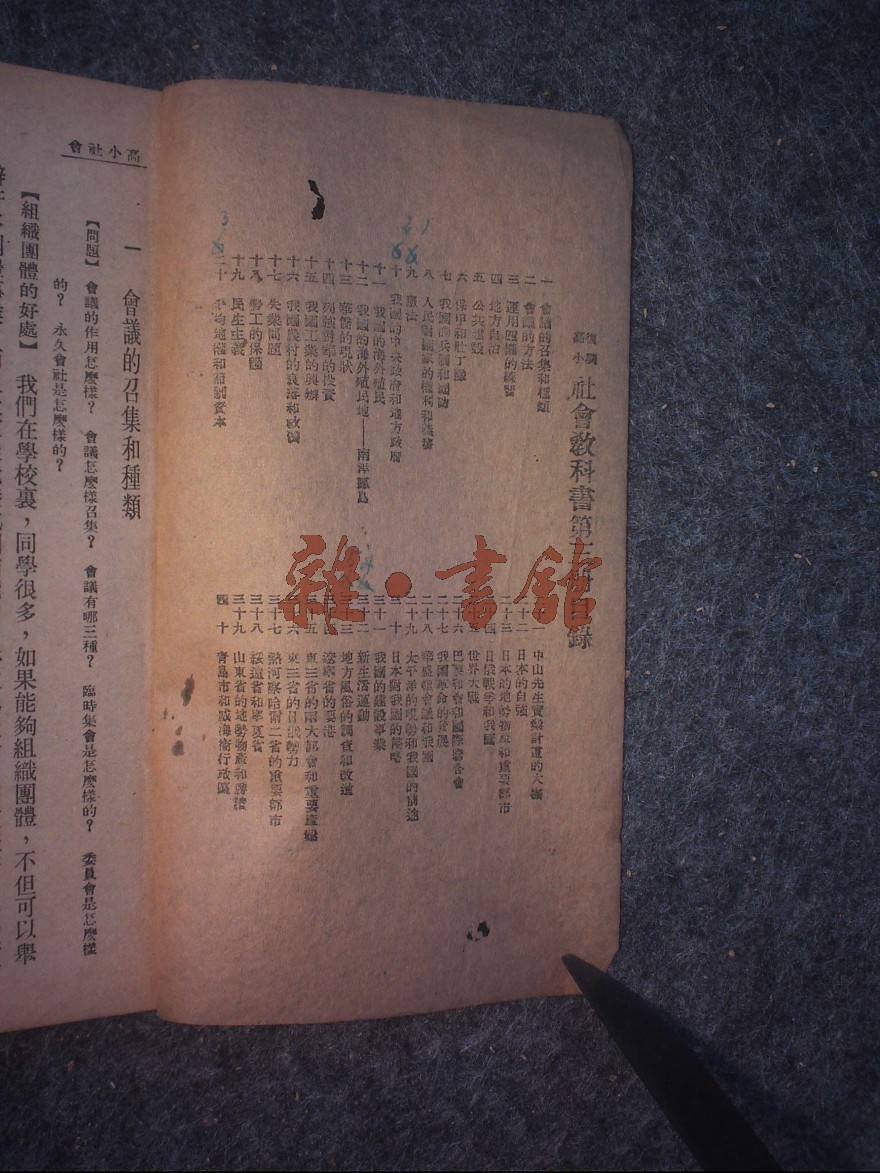 復興
高小
社會教科書第三冊目錄
一 會議的召集和種類
二 會議的方法
三 運用四權的練習
四 地方自治
五 公共建設
六 保甲和壯丁隊
七 我國的兵制和國防
八 人民對國家的權利和義務
九 憲法
十 我國的中央政府和地方政府
十一 我國的海外殖民
十二 我國的海外殖民地——南洋羣島
十三 華僑的現狀
十四 列強對華的投資
十五 我國工業的興辦
十六 我國農村的衰落和改進
十七 失業問題
十八 勞工的保護
十九 民生主義
二十 平均地權和節制資本
中山先生實業計畫的大概
二十二 日本的自強
二十三 日本的地勢物產和重要都市
日俄戰爭和我國
世界大戰
二十六 巴黎和會和國際聯合會
二十七 我國革命的發展
二十八 華盛頓會議和我國
二十九 太平洋的現勢和我國的前途
三十 日本對我國的侵略
三十一 我國的建設事業
三十二 新生活運動
地方風俗的調查和改進
遼寧省的要港
東三省的兩大都會和重要產業
東三省的日俄勢力
三十七 熱河察哈爾二省的重要都市
三十八 綏遠省和寧夏省
三十九 山東省的地勢物產和勝蹟
四十 青島市和威海衛行政區
雜·書館
高小社會
一 會議的召集和種類
【問題】 會議的作用怎麼樣？ 會議怎麼樣召集？ 會議有哪三種？ 臨時集會是怎麼樣的？ 委員會是怎麼樣
的？ 永久會社是怎麼樣的？
【組織團體的好處】 我們在學校裏，同學很多，如果能夠組織團體，不但可以舉